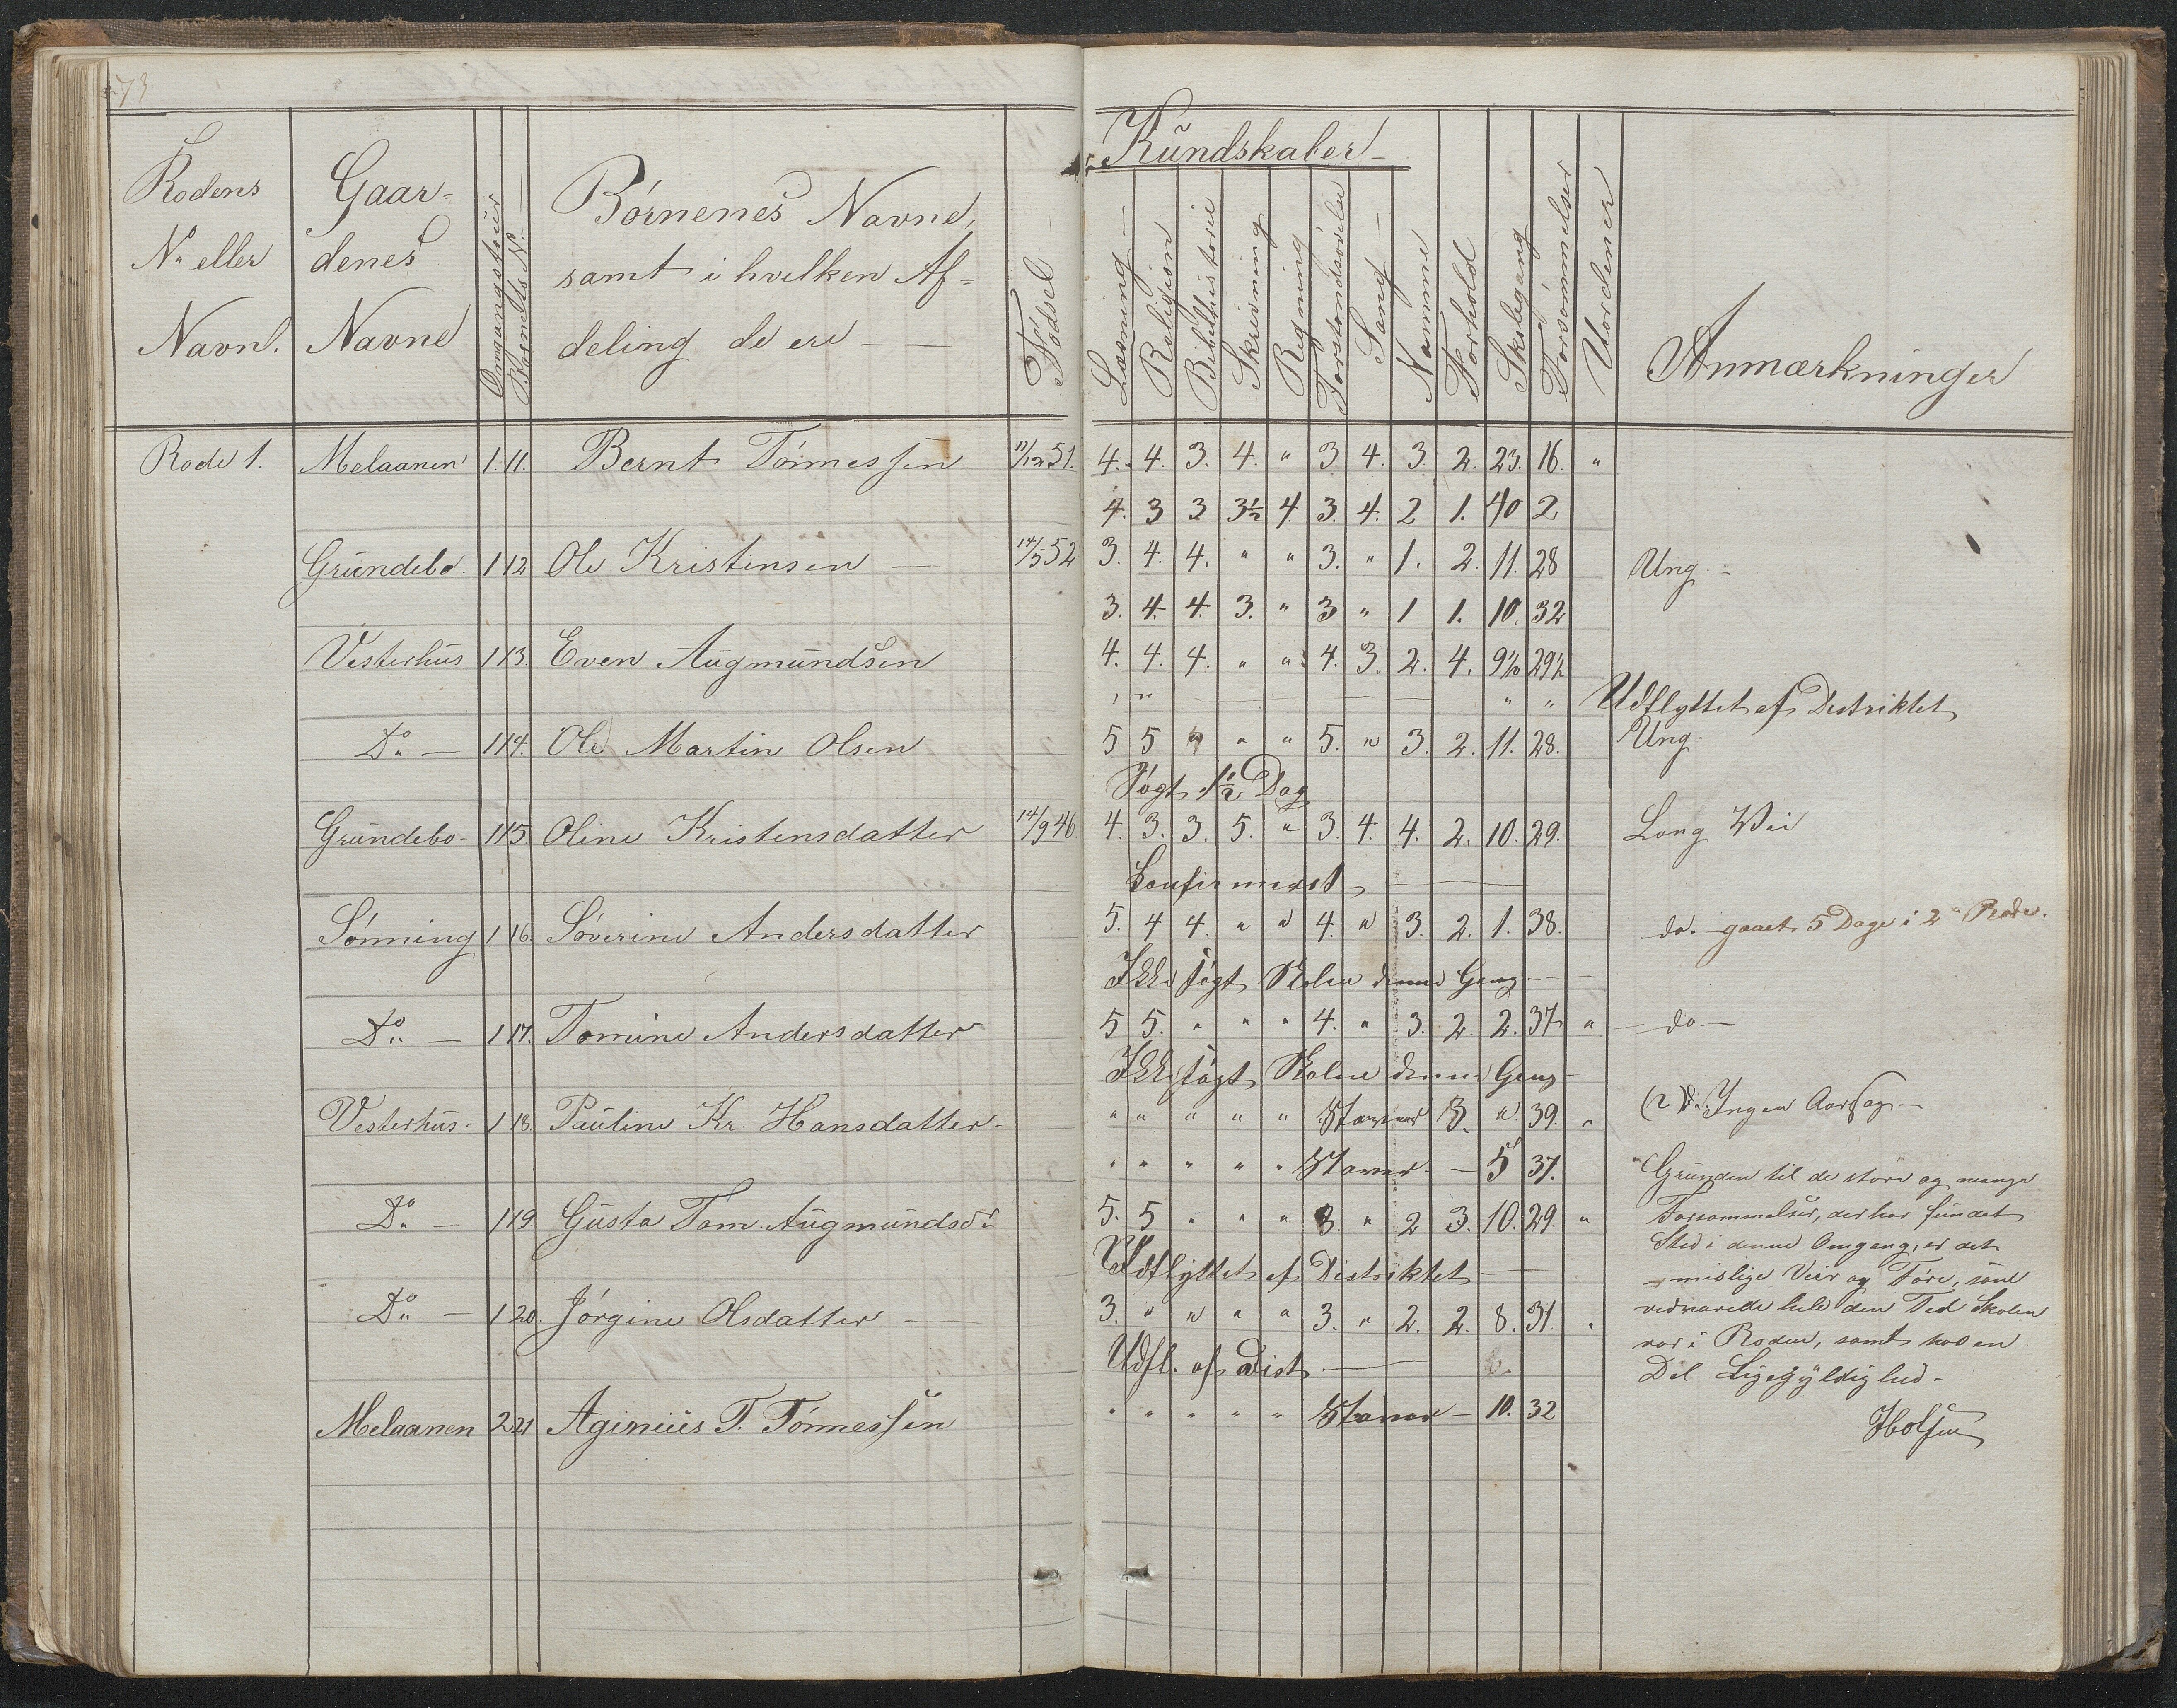 73
Rodens Nº eller Navn.
Gaardenes Navne
Omgangstour
Barnets Nº
Børnenes Navne,
samt i hvilken Af=
deling de ere
Fødsel
Kundskaber
Læsning
Religion
Bibelhistorie
Skrivning
Regning
Forstandsøvelse
Sang
Nomme
Forhold
Skolegang
Forsømmelser
Uordener
Anmærkninger
Rode 1. Melaanen 1. 11. Bernt Tönnessen 11/12 51. 4. 4. 3. 4. " 3 4. 3. 2. 23. 16. "
4. 3 3 3½ 4. 3. 4. 2 1. 40 2
Grundebo. 1 12 Ole Kristensen 14/5 52 3. 4. 4. " " 3. " 1. 2. 11. 28 Ung.
3. 4. 4. 3. " 3 " 1 1. 10. 32
Vesterhus 1 13. Even Augmundsen 4. 4. 4. " " 4. 3. 2. 4. 9½ 29½
" " " " Udflyttet af Destriktet
Do 1 14. Ole Martin Olsen 5 5 " " " 5. " 3. 2. 11. 28. Ung.
Søgt 1½ Dag
Grundebo. 1 15. Oline Kristensdatter 14/9 46 4. 3. 3. 5. " 3. 4. 4. 2. 10. 29. Lang Vei
Konfirmeret
Sønning 1 16. Søverine Andersdatter 5. 4 4. " " 4. " 3. 2. 1. 38. do. gaaet 5 Dage i 2 Rode.
Ikke søgt Skolen denne Gang
Do 1 17. Tomine Andersdatter 5 5. " " " 4. " 3. 2. 2. 37 " do.
Ikke søgt Skolen denne Gang
Vesterhus. 1 18. Pauline Kr. Hansdatter. " " " " " Staver 3. " 39. " Ingen Aarsag.
" " " " " Staver 5 37.
Do 1 19. Gusta Tom. Augmundsdr 5. 5 " " " 3. " 2 3. 10. 29. "
Udflyttet af Distriktet
Do 1 20. Jörgine Olsdatter 3. " " " " 3. " 2. 2. 8. 31. "
Udfl. af Dist
Melaanen 2 21 Aginius T. Tönnessen " " " " " Staver 10. 32
Grunden til de store og mange
Forsømmelser, der har fundet
Sted i denne Omgang, er det
mislige Veir og Føre, som
vedvarede hele den Tid Skolen
var i Roden, samt hos en
Del Ligegyldighed.